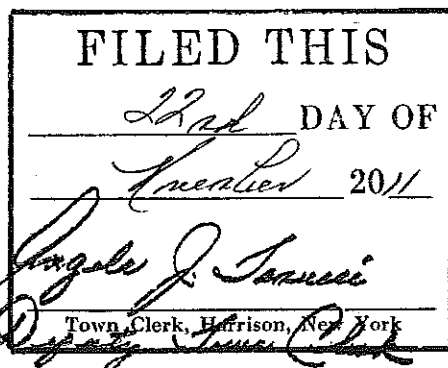 FILED THIS
22nd DAY OF
November 2011
J.
Town Clerk, Harrison, New York
Deputy Town Clerk